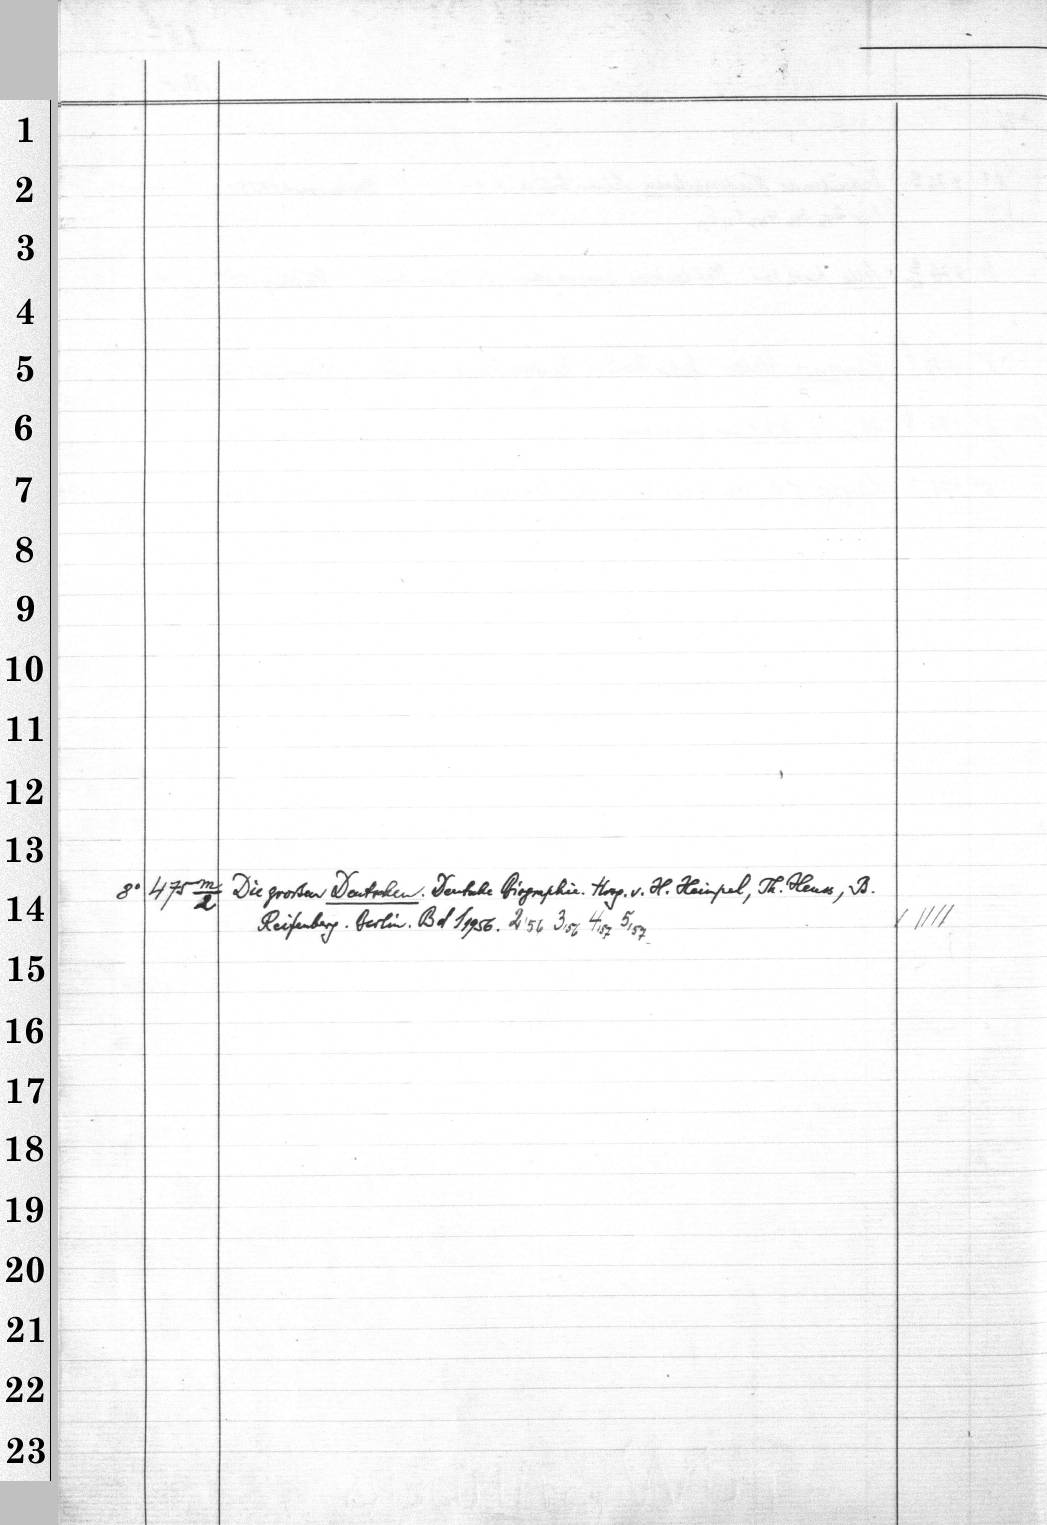 1
2
3
4
5
6
7
8
9
10
11
12
13
8° 475 m/2 Die grossen Deutschen. Deutsche Biographie. Hrsg. v. H. Heimpel, Th. Heuss, B.
14
Reifenberg. Berlin. Bd 1,1956. 2,'56 3,56 4,57 5,57
15
16
17
18
19
20
21
22
23